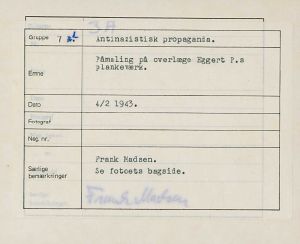 3A
Gruppe 7 Antinazistisk propaganda.
Emne Påmaling på overlæge Eggert P.s
plankeværk.
Dato 4/2 1943.
Fotograf
Neg. nr.
Særlige
bemærkninger
Frank Madsen.
Se fotoets bagside.
Frank Madsen